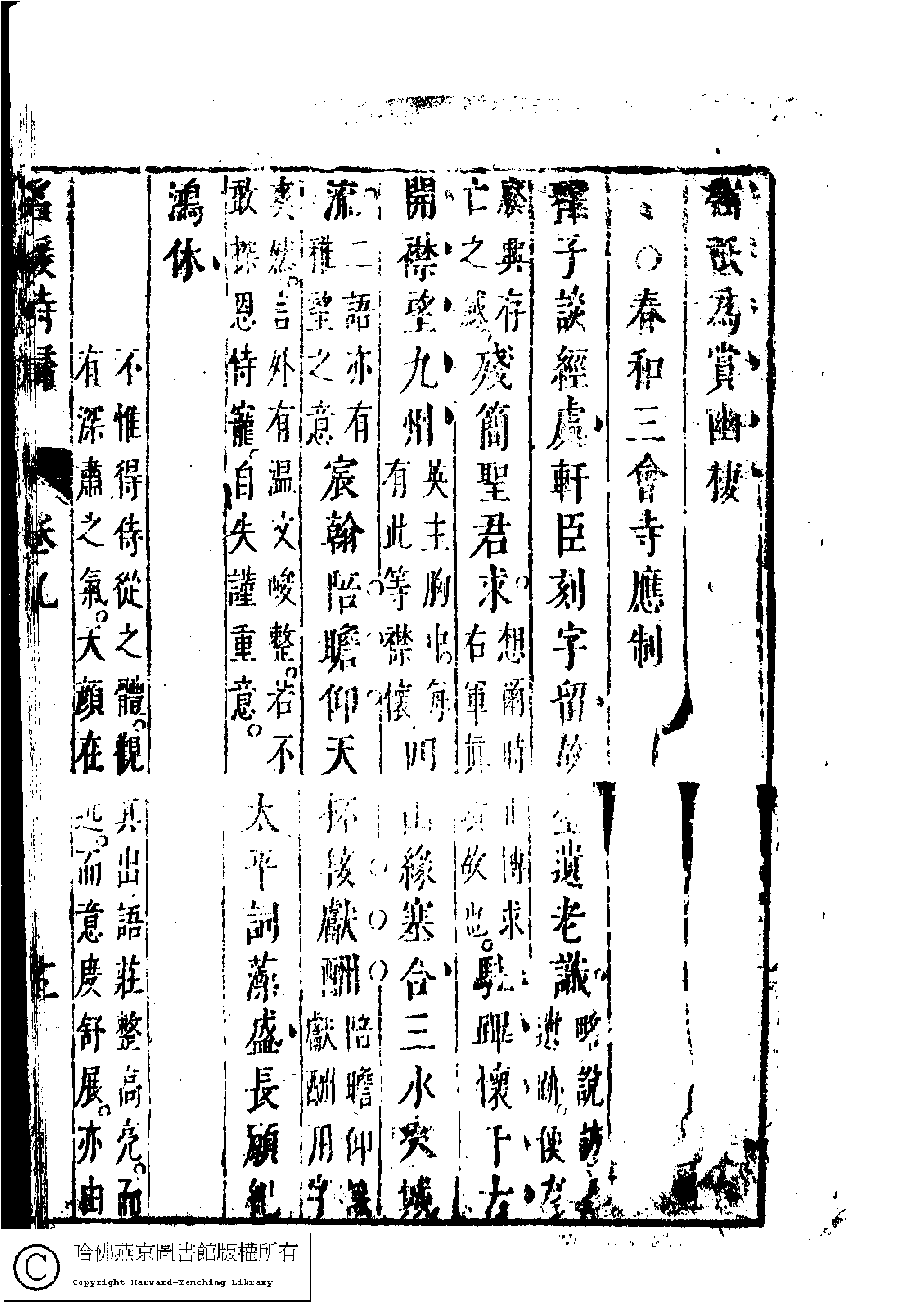 祗為賞幽棲
○春和三會寺應制
釋子談經處軒臣刻字留故臺遺老識略說
遺跡。便有
廢興存亡之感殘簡聖君求。想爾時
右軍真博求
故也。駐蹕懷千古
開襟望九州英主胸中每
有此等襟懷四山緣塞合三水夾城
流二語亦有
雅望之意宸翰陪瞻仰天杯接獻酬陪瞻仰
獻酬用字
爽然。言外有温文峻整。若不
敢探恩恃寵自失謹重意。太平詞藻盛長願紀
鴻休
不惟得侍從之體。觀其出語莊整高亮。而
有深肅之氣。天顏在邇。而意度舒展。亦由
名媛詩歸 卷九
哈佛燕京圖書館版權所有
Copyright Harvard-Yenching Library